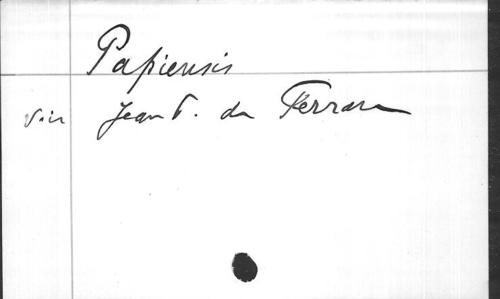 Papiensis
Voir Jean P. de Ferraris